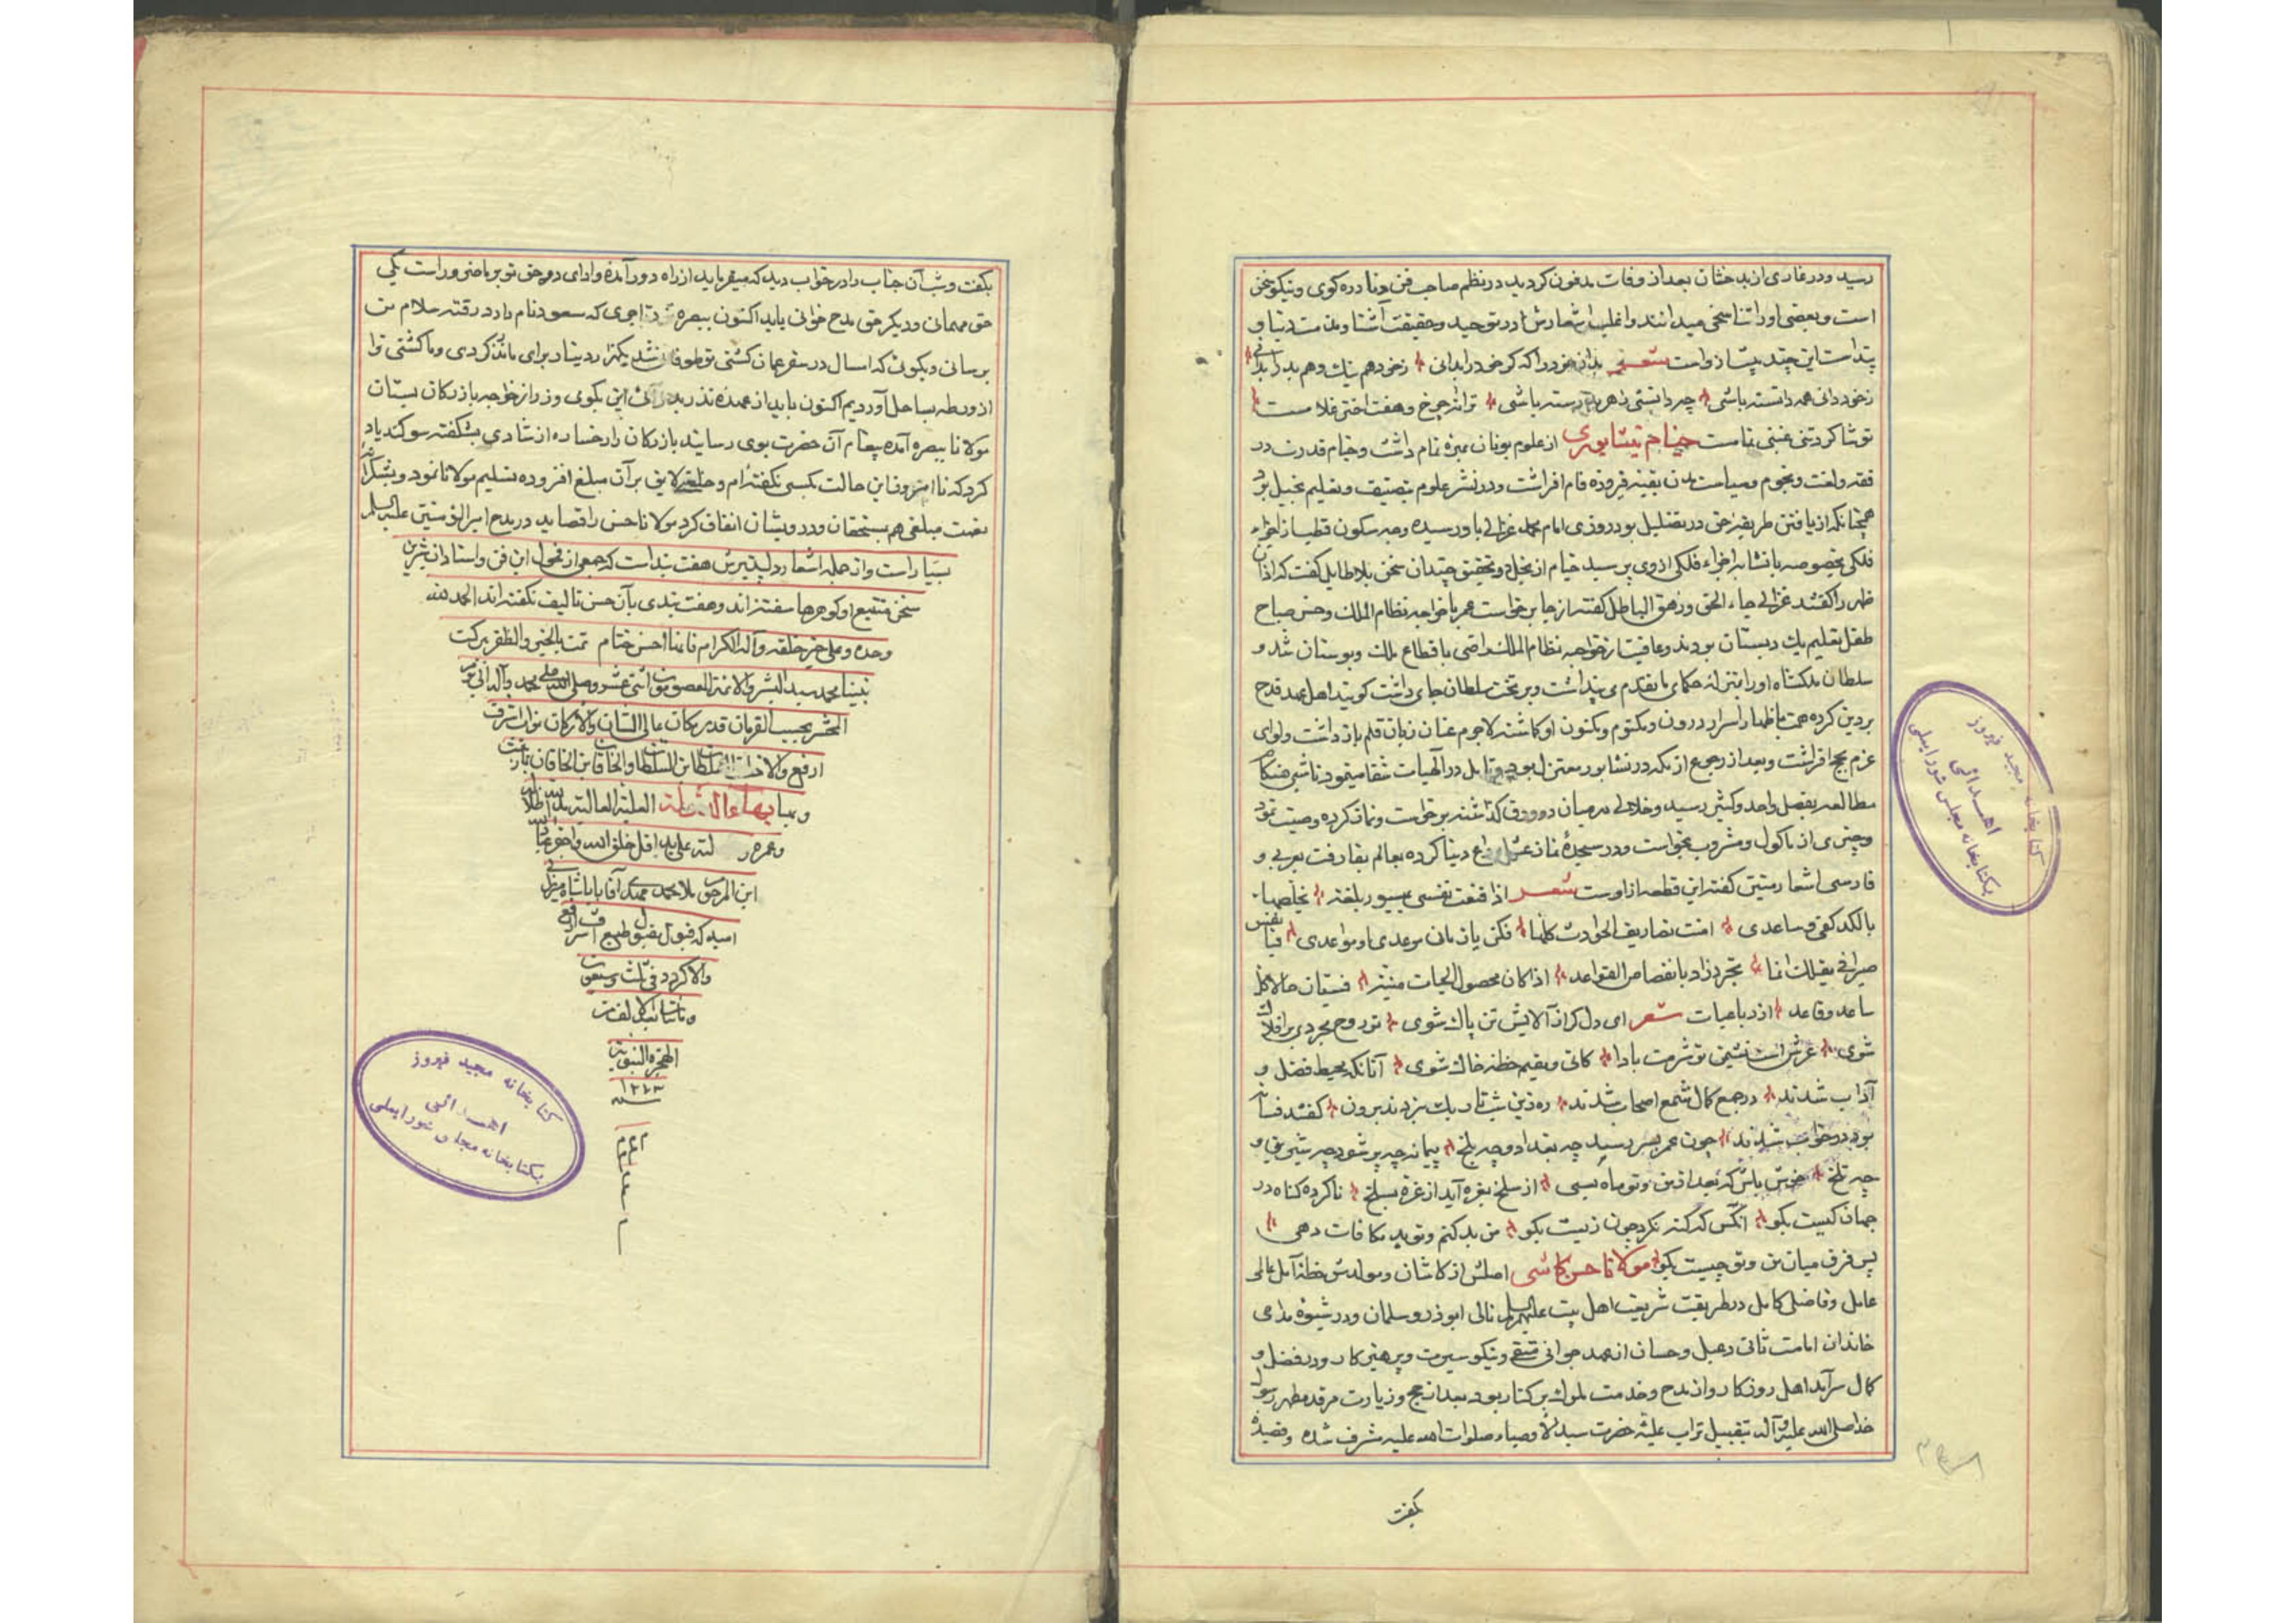 رسید و در غاری از بدخشان بعد از وفات مدفون کردید در نظم صاحب فن و نادره کوی و نیکو سخن
است و بعضی او را تناسخی میدانند و اغلب اشعارش در توحید و حقیقت آشنا و مذمت دنیا و
پند است این چند بیت از و است شعر بدان خود را که کر خود را بدانی ز خود هم نیک و هم بد را بدانی
ز خود دانی همه دانسته باشی چو دانستی ز هر بد رسته باشی ترا نه چرخ و هفت اختر غلامست
تو شاکرد تنی غبنی تمامست خیام نیشابوری از علوم یونان بهره تمام داشت و خیام قدرت در
فقه و لغت و نجوم و سیاست مدن بقبه فیروزه فام افراشت و در نشر علوم بتصنیف و تعلیم بخیل بود
همچنانکه از یافتن طریقه حق در تضلیل بود روزی امام محمد غزالی باو رسیده وجه سکون قطب از اجزاء
فلکی بخصوصه با تشابه اجزاء فلکی از وی پرسید خیام از بخل در تحقیق چندان سخن بلاطایل گفت که اذان
ظهر را گفتند غزالی جاء الحق و زهق الباطل گفته از جا برخواست عمر با خواجه نظام الملک و حسن صباح
طفل تعلیم یک دبستان بودند و عاقبت از خواجه نظام الملک راضی باقطاع ملک و بوستان شد و
سلطان ملکشاه او را بمنزله حکمای ما تقدم می پنداشت و بر تخت سلطان جای داشت کویند اهل عهد قدح
بر دین کرده همت باظهار اسرار درون و مکتوم و مکنون او کماشتند لاجرم عنان زبان قلم باز داشت و لوای
عزم حج افراشت و بعد از رجوع از مکه در نشابور معتزل بود و تأمل در الهیات شفا مینمود تا شبی هنکام
مطالعه بفصل واحد و کثیر رسید و خلالی در میان دو ورق گذاشته برخواست و نماز کرده وصیت نمود
و چیزی از ماکول و مشروب نخواست و در سجده نماز عشا وداع دنیا کرده بعالم بقا رفت بعربی و
فارسی اشعار متین گفته این قطعه از اوست شعر اذا قنعت نفسی بمیسور بلغة یحصلها
بالکد کفی و ساعدی امنت تصاریف الحوادث کلها فکن یا زمانی موعدی او مواعدی فیا نفس
صبرا فی مقیلک انما تخر ذراه بانقضاض القواعد اذا کان محصول الحیات منیة فسیان حالا کل
ساعد و قاعد از رباعیات شعر ای دل کر از آلایش تن پاک شوی تو روح مجردی بر افلاک
شوی عرش است نشیمن تو شرمت بادا کائی و مقیم خطه خاک شوی آنانکه محیط فضل و
آداب شدند در جمع کمال شمع اصحاب شدند ره زین شب تاریک نبردند برون گفتند فسانه
و در خواب شدند چون عمر بسر رسید چه بغداد و چه بلخ پیمانه چو پر شود چه شیرین و
چه تلخ خوش باش که بعد از من و تو ماه بسی از سلخ بغره آید از غره بسلخ ناکرده کناه در
جهان کیست بکو آنکس که کنه نکرد چون زیست بکو من بد کنم و تو بد مکافات دهی
پس فرق میان من و تو چیست بکو مولانا حسن کاشی اصلش از کاشان و مولدش خطه آمل عالمی
عامل و فاضلی کامل در طریقت شریعت اهل بیت علیهم السلام تالی ابوذر و سلمان و در شیوه مداحی
خاندان امامت ثانی دعبل و حسان از عهد جوانی متقی و نیکو سیرت و پرهیزکار و در فضل و
کمال سرآمد اهل روزکار و از مدح و خدمت ملوک بر کنار بود بعد از حج و زیارت مرقد مطهر رسول
خدا صلی الله علیه و آله بتقبیل تراب علیه حضرت سید الاوصیاء صلوات الله علیه مشرف شده و قصیده
بکفت
بکفت و شب آن جناب را در خواب دید که میفرماید از راه دور آمده و ادای دو حق تو بر ما ضرور است یکی
حق مهمانی و دیکر حق مدح خوانی باید اکنون ببصره تاجری که مسعود نام دارد رفته سلام من
برسانی و بکوئی که امسال در سفر عمان کشتی تو طوفانی شد یکهزار دینار برای ما نذر کردی و ما کشتی ترا
از ورطه بساحل آوردیم اکنون باید از عهده نذر بدر آئی این بکوی و زر از خواجه بازرکان بستان
مولانا ببصره آمده پیغام آن حضرت بوی رسانید بازرکان را رخساره از شادی بشکفته سوکند یاد
کرد که تا امروز این حالت بکسی نگفته ام و خلعتی لایق بر آن مبلغ افزوده تسلیم مولانا نمود و بشکرانه
نعمت مبلغی هم بمستحقان و درویشان انفاق کرد مولانا حسن را قصاید در مدح امیر المؤمنین علیه السلام
بسیار است و از جمله اشعار دلپذیرش هفت بند است که جمعی از فحول این فن و استادان شیرین
سخن تتبع او کوهرها سفته اند و هفت بندی بآن حسن تالیف نکفته اند الحمد لله
وحده و علی خیر خلقه و آله الکرام فانها احسن ختام تمت بالخیر و الظفر ببرکت
نبینا محمد سید البشر و الائمة المعصومین اثنی عشر و صلی الله علی محمد و آله الی یوم
المحشر بحسب الفرمان قدر مکان عالی الشان و الارکان نواب اشرف
ارفع والا السلطان بن السلطان و الخاقان بن الخاقان
بهاء الدولة العلیة العالیة
علی ید اقل خلق الله
ابن المرحوم ملا محمد مهدی آقا بابا شاه میرزائی
امید که قبول مقبول طبع اشرف ارفع
والا کردد فی ثلث و سبعون
و مأتان بعد الالف من
الهجرة النبویة
سنه ۱۲۷۳
کتابخانه مجید فیروز
اهدائی
بکتابخانه مجلس شورایملی
کتابخانه مجید فیروز
اهدائی
بکتابخانه مجلس شورایملی